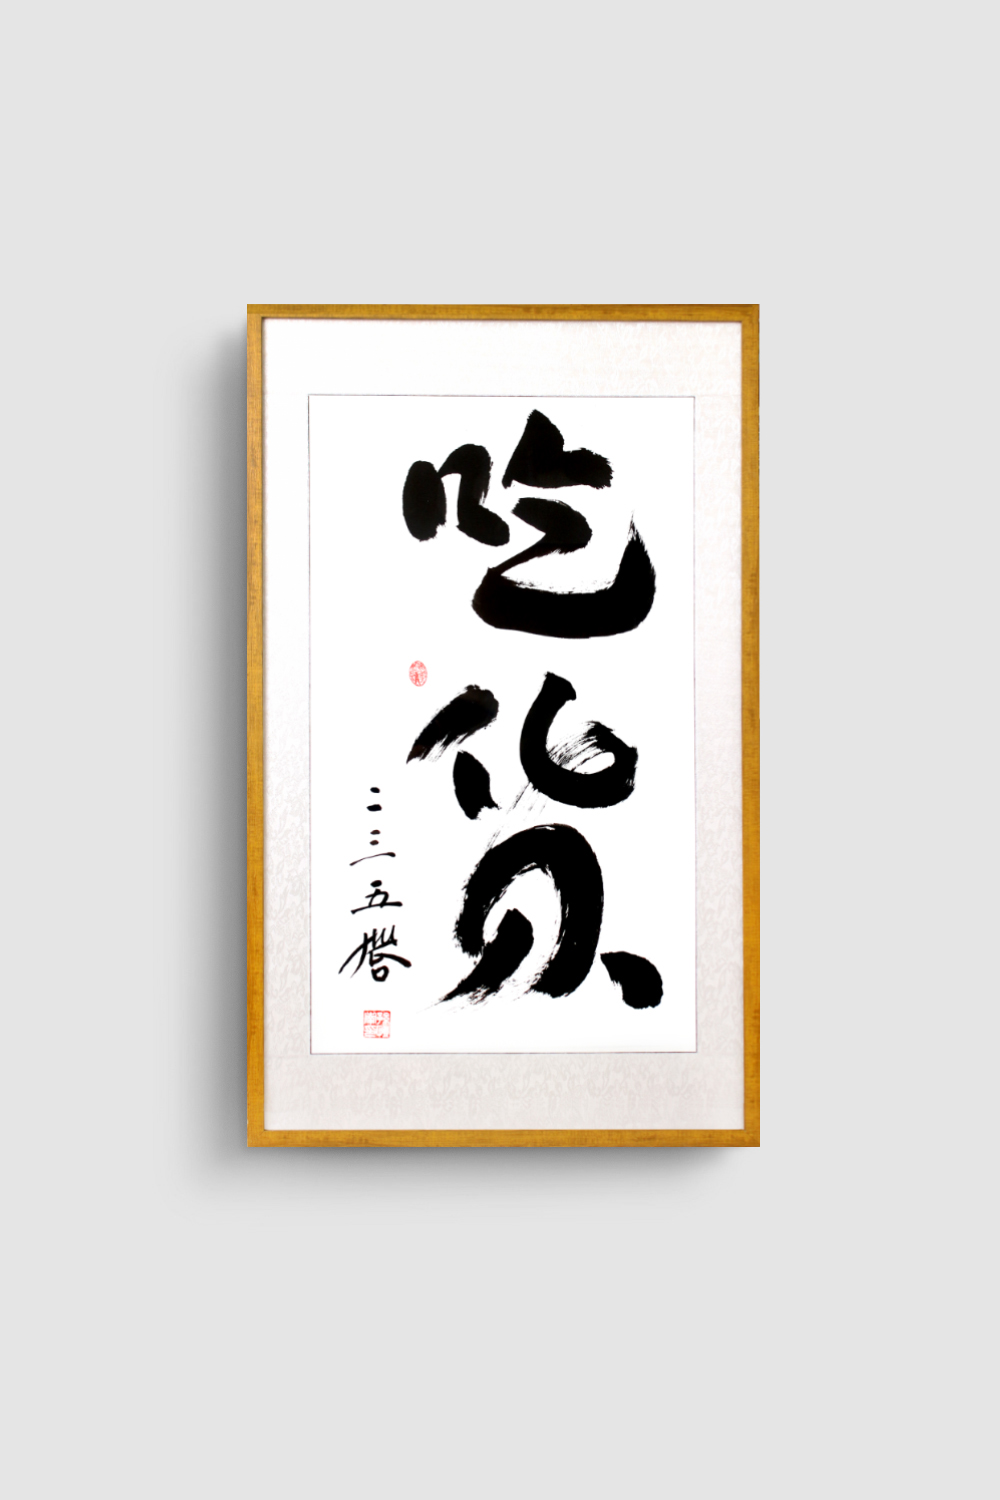 吃货
二三五